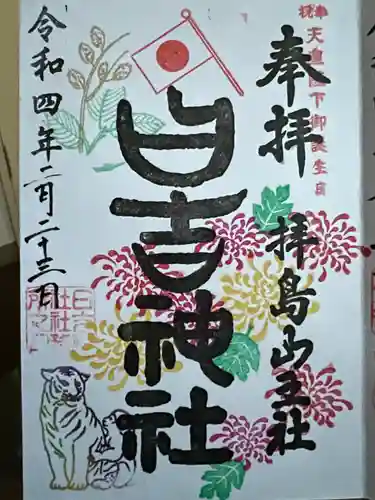 奉祝天皇陛下御誕生日
奉拝
拝島山王社
日吉神社
令和四年二月二十三日